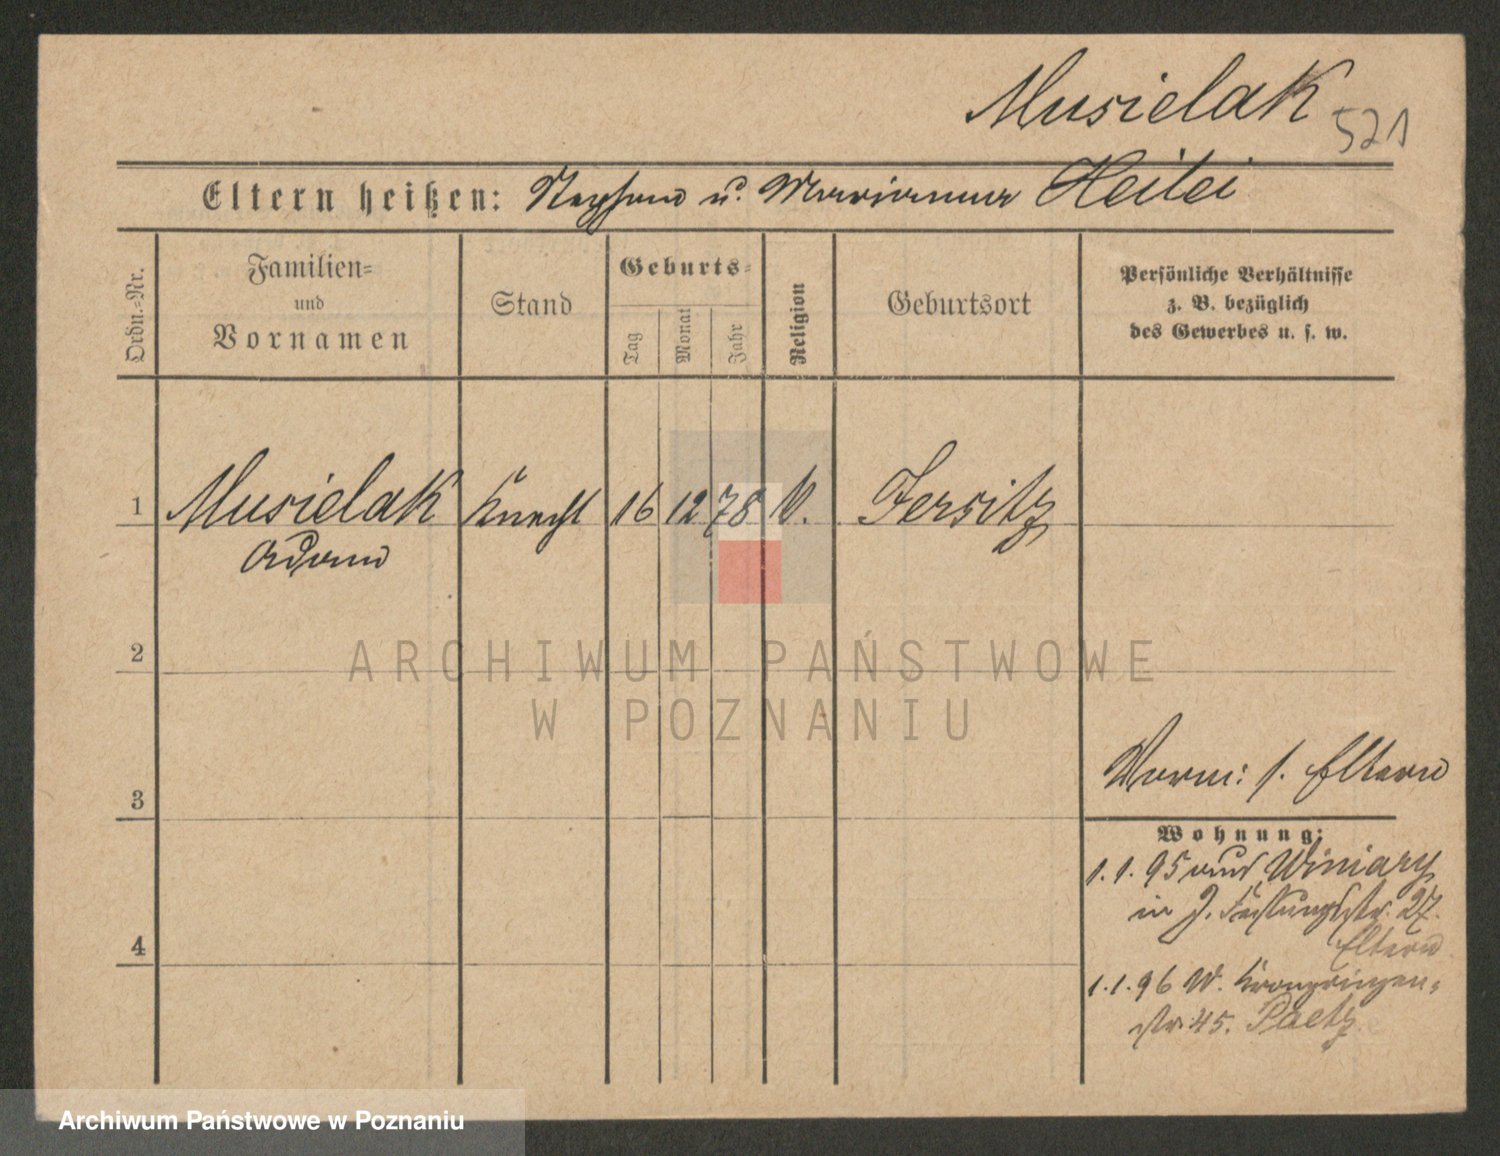 Musielak
521
Eltern heißen: Stephan u. Marianna Heilei
Ordn.=Nr.
Familien=
und
Vornamen
Stand
Geburts=
Tag
Monat
Jahr
Religion
Geburtsort
Persönliche Verhältnisse
z. B. bezüglich
des Gewerbes u. s. w.
1 Musielak Knecht 16 12 78 Jersitz
Adam
2
ARCHIWUM PAŃSTWOWE
W POZNANIU
Vorm: s. Eltern
3
Wohnung:
1.1.95 aus Winiary
in J. Festungsstr. 27.
4
Eltern
1.1.96 W. Kronprinzen=
str. 45. Paetz
Archiwum Państwowe w Poznaniu